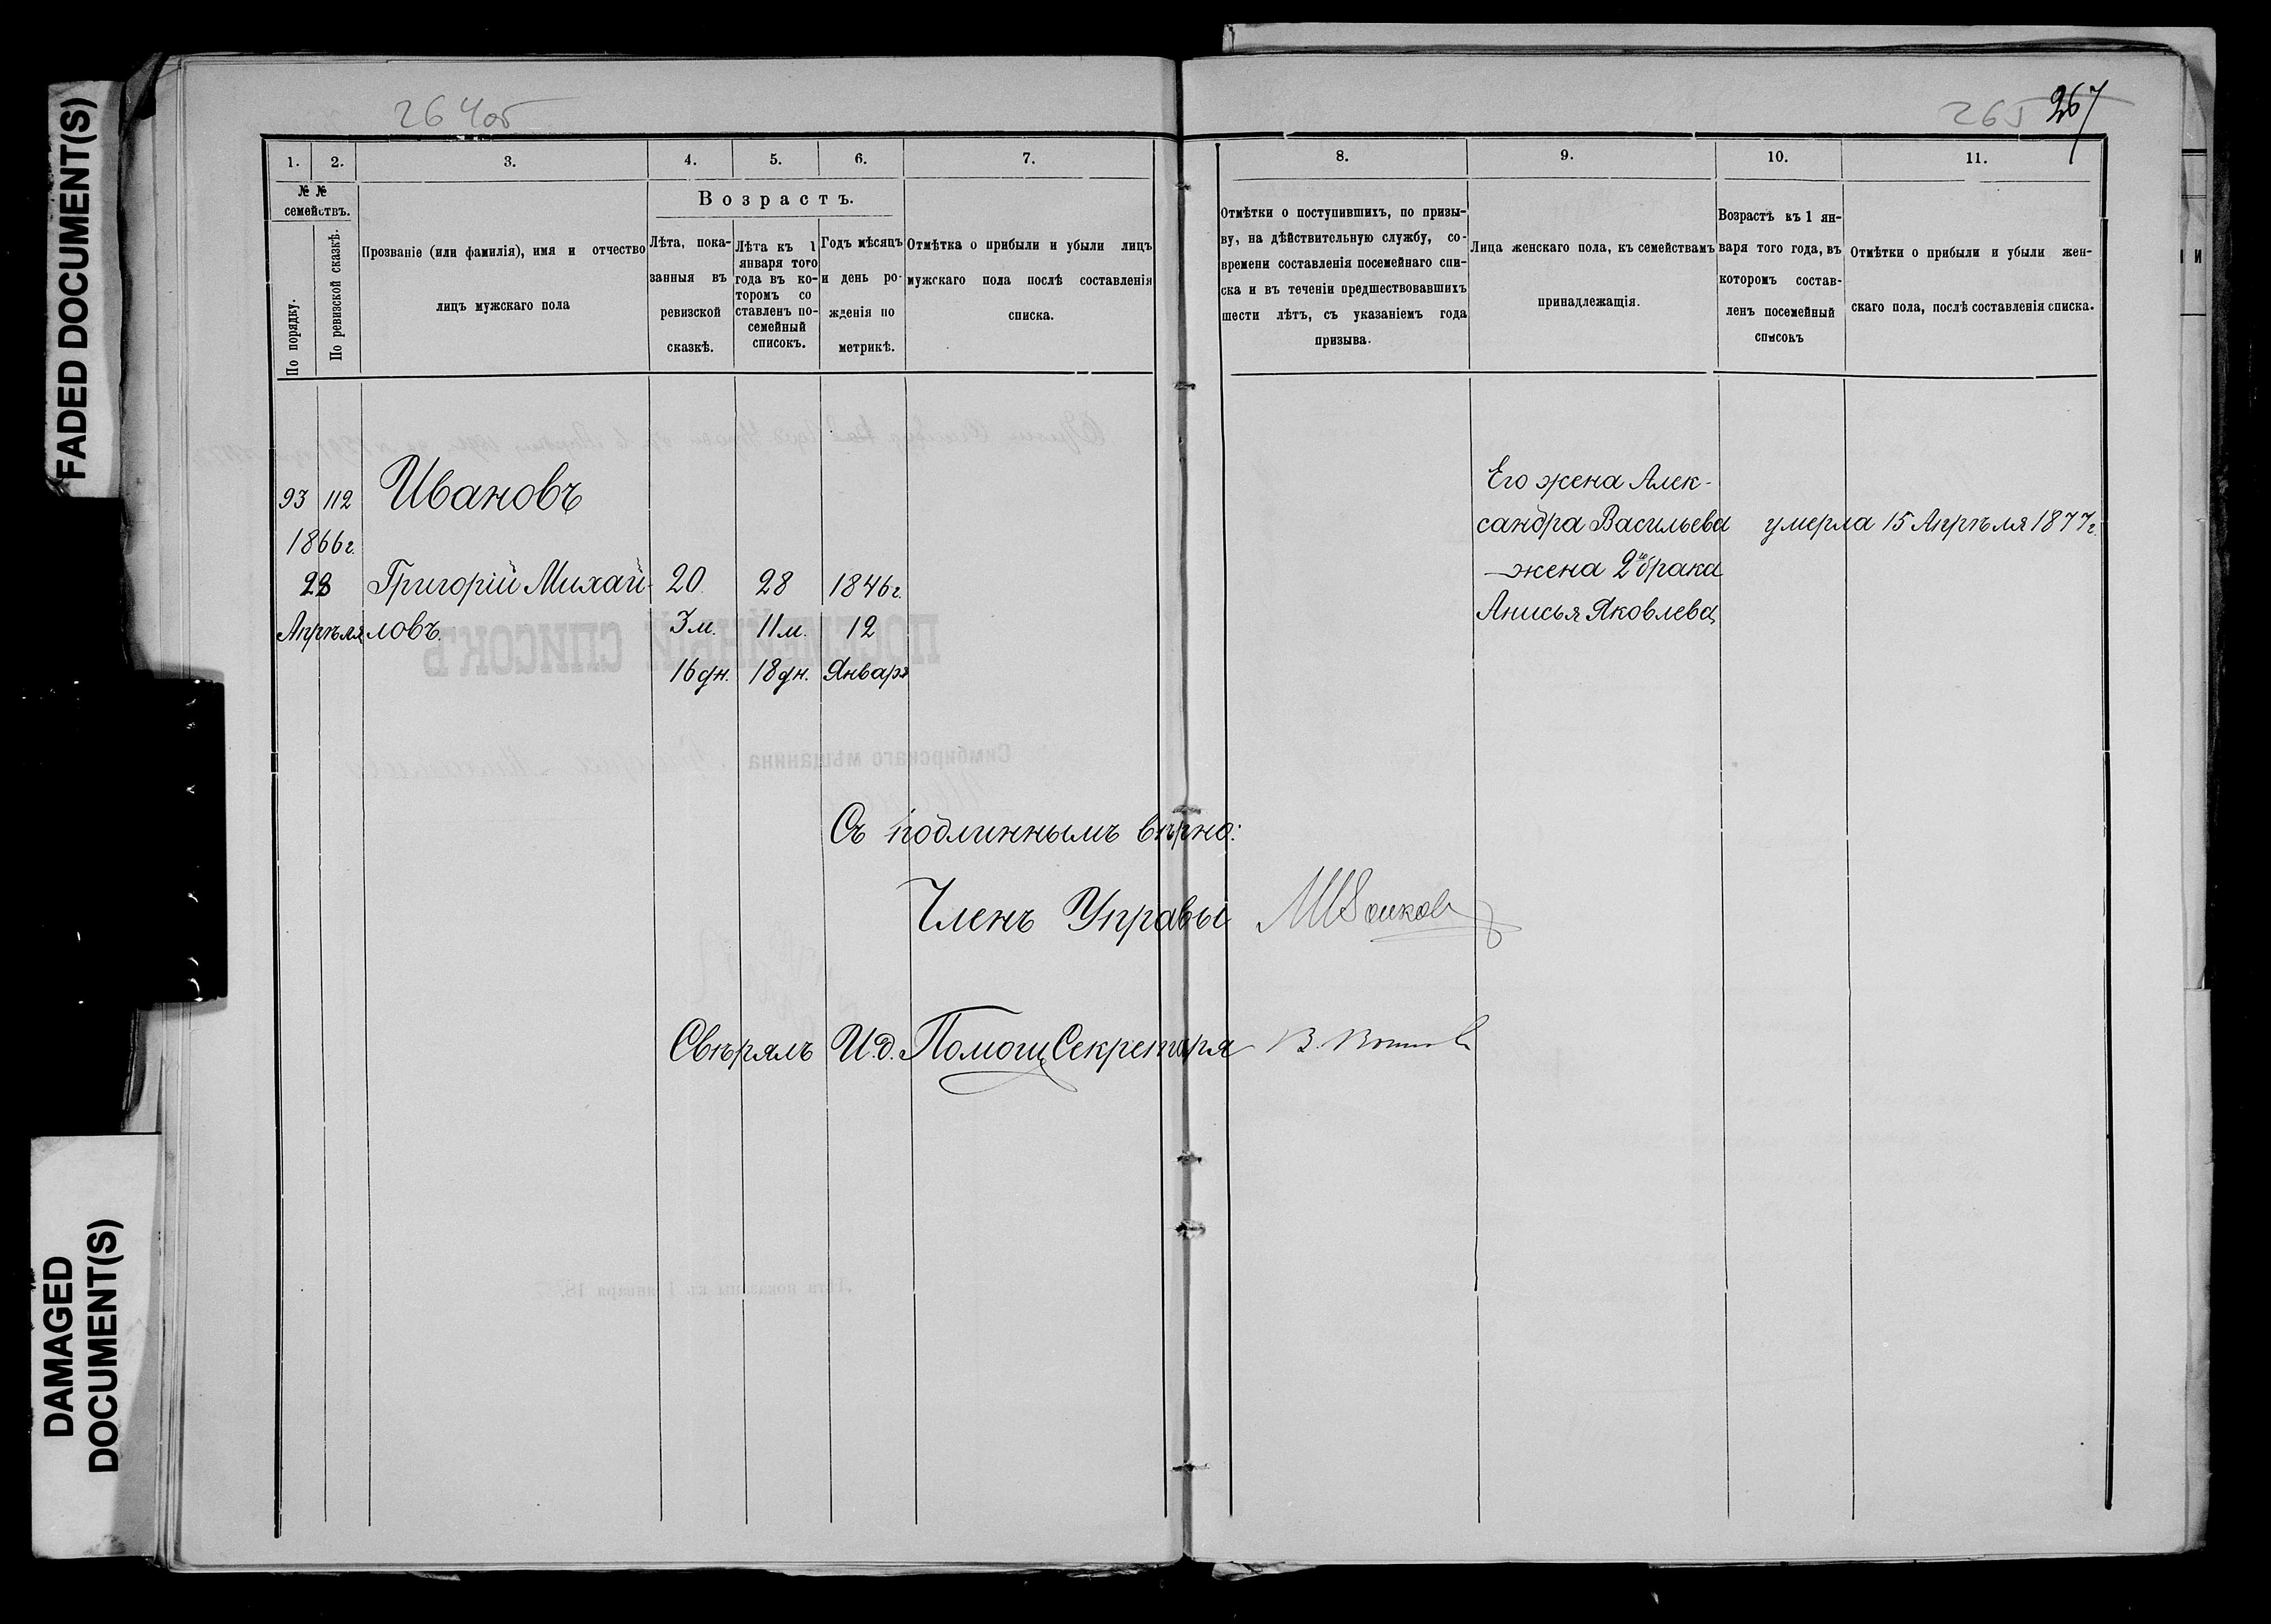 FADED DOCUMENT(S)
DAMAGED
DOCUMENT(S)
264об
1. 2. 3. 4. 5. 6. 7.
№ №
семействъ.
По порядку.
По ревизской сказкѣ.
Прозваніе (или фамилія), имя и отчество
лицъ мужскаго пола
Возрастъ.
Лѣта, пока-
занныя въ
ревизской
сказкѣ.
Лѣта къ 1
января того
года въ ко-
торомъ со
ставленъ по-
семейный
списокъ.
Годъ мѣсяцъ
и день ро-
жденія по
метрикѣ.
Отмѣтка о прибыли и убыли лицъ
мужскаго пола послѣ составленія
списка.
93 112 Ивановъ
1866г.
28 Григорій Михай- 20. 28 1846г.
Апрѣля ловъ. 3м. 11м. 12
16дн. 18дн. Января
ПОСЕМЕЙНЫЙ СПИСОКЪ
Симбирскаго мѣщанина
Съ подлиннымъ вѣрно:
Членъ Управы
Свѣрялъ И.д. Помощ. Секретаря
Лѣта показаны къ 1 января 18
265 267
8. 9. 10. 11.
Отмѣтки о поступившихъ, по призы-
ву, на дѣйствительную службу, со-
времени составленія посемейнаго спи-
ска и въ теченіи предшествовавшихъ
шести лѣтъ, съ указаніемъ года
призыва.
Лица женскаго пола, къ семействамъ
принадлежащія.
Возрастъ къ 1 ян-
варя того года, въ
которомъ состав-
ленъ посемейный
списокъ
Отмѣтки о прибыли и убыли жен-
скаго пола, послѣ составленія списка.
Его жена Алек-
сандра Васильева умерла 15 Апрѣля 1877г.
жена 2го брака
Анисья Яковлева